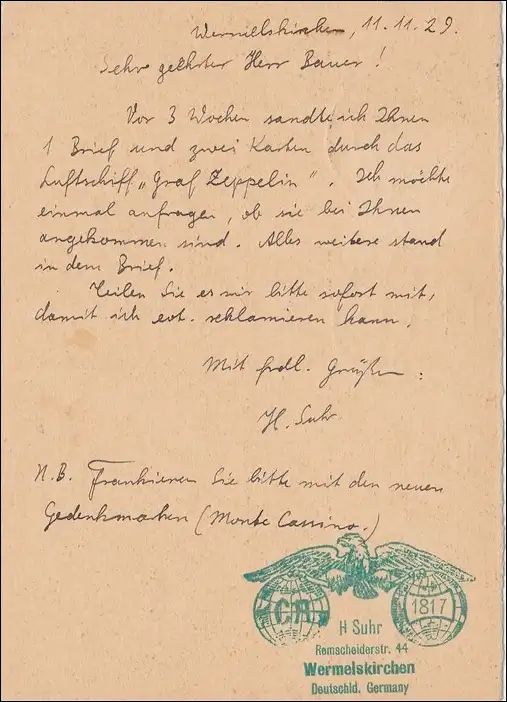 Wermelskirchen, 11.11.29.
Sehr geehrter Herr Bauer!
Vor 3 Wochen sandte ich Ihnen
1 Brief und zwei Karten durch das
Luftschiff „Graf Zeppelin". Ich möchte
einmal anfragen, ob sie bei Ihnen
angekommen sind. Alles weitere stand
in dem Brief.
Teilen Sie es mir bitte sofort mit,
damit ich evt. reklamieren kann.
Mit frdl. Grüßen:
H. Suhr
N.B. Frankieren Sie bitte mit den neuen
Gedenkmarken (Monte Cassino.)
1817
H Suhr
Remscheiderstr. 44
Wermelskirchen
Deutschld. Germany